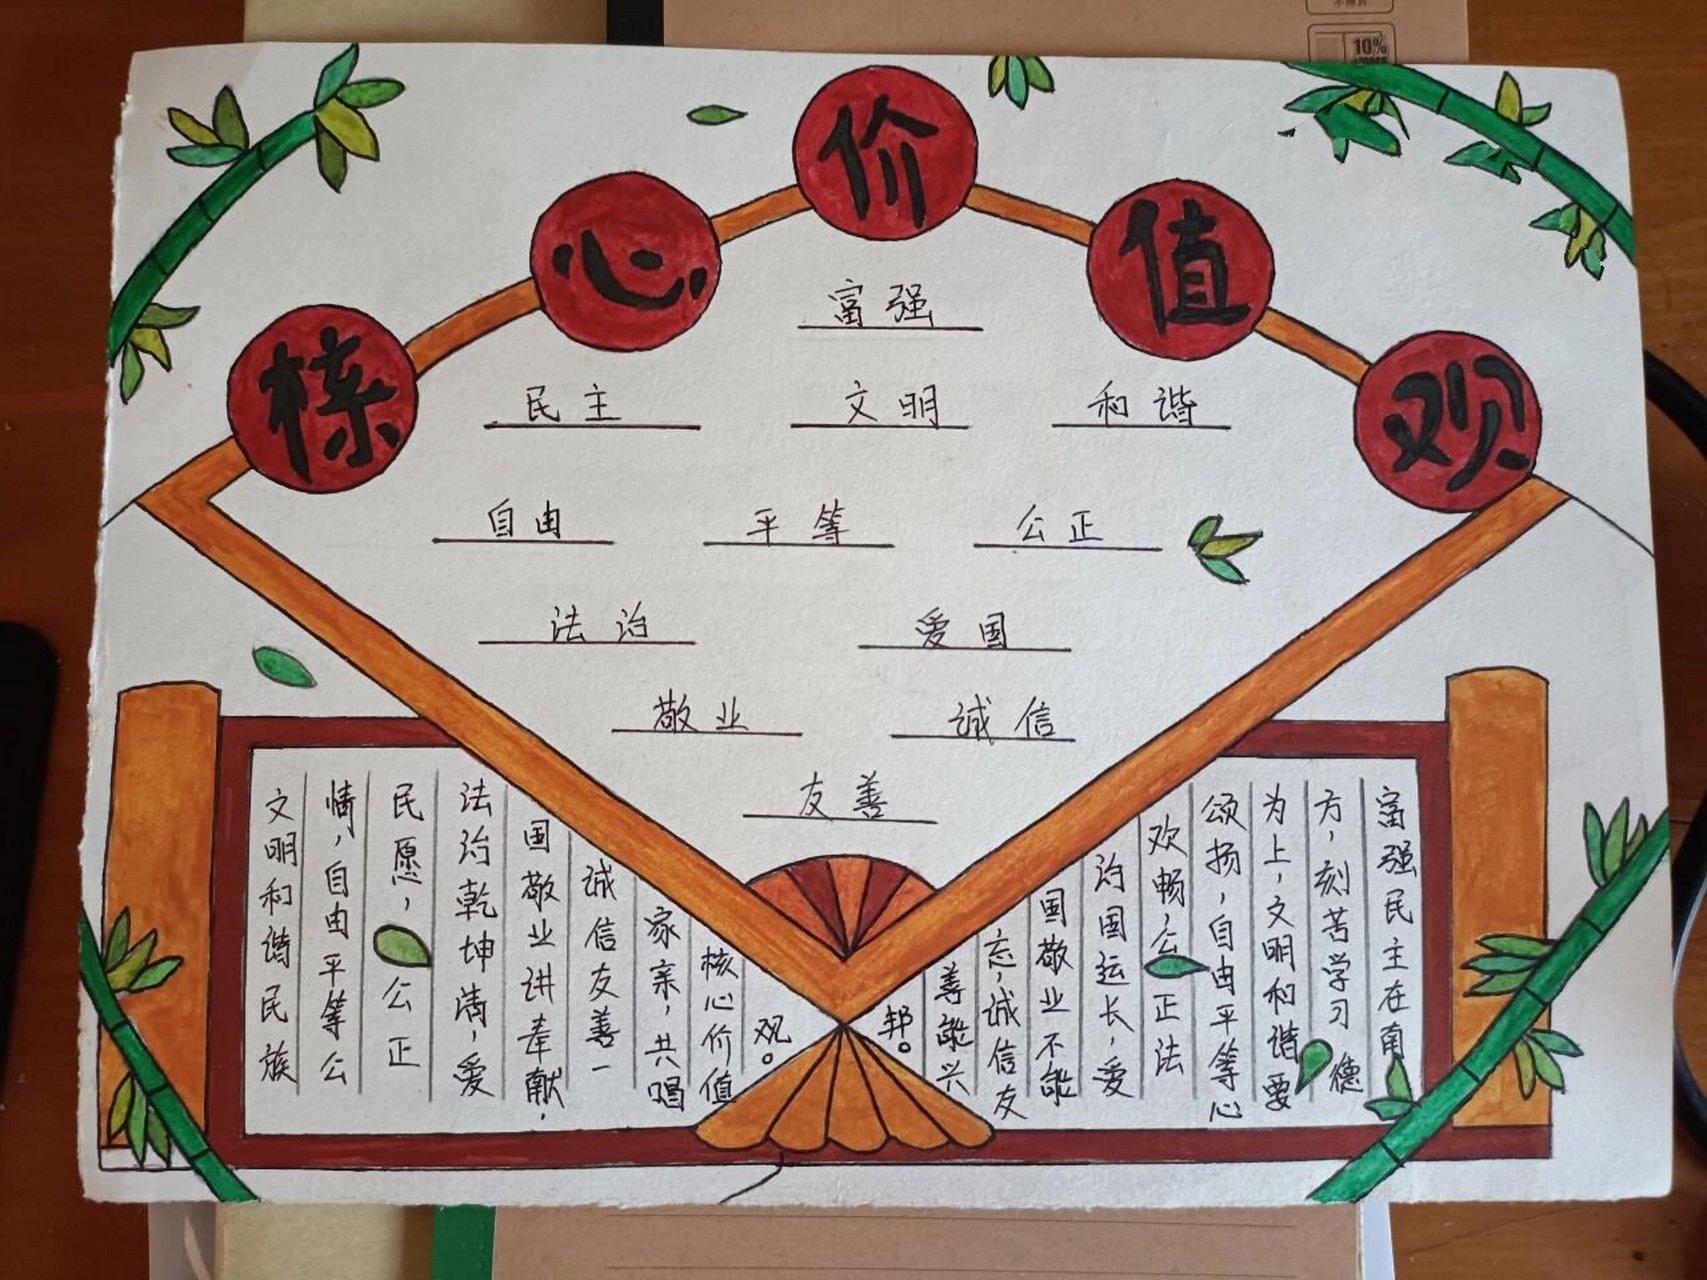 核心价值观
富强
民主 文明 和谐
自由 平等 公正
法治 爱国
敬业 诚信
友善
富强民主在南
方,刻苦学习德
为上,文明和谐要
颂扬,自由平等心
欢畅,公正法
治国运长,爱
国敬业不能
忘,诚信友
善能兴
邦。
文明和谐民族
情,自由平等公
民愿,公正
法治乾坤清,爱
国敬业讲奉献,
诚信友善一
家亲,共唱
核心价值
观。
10%